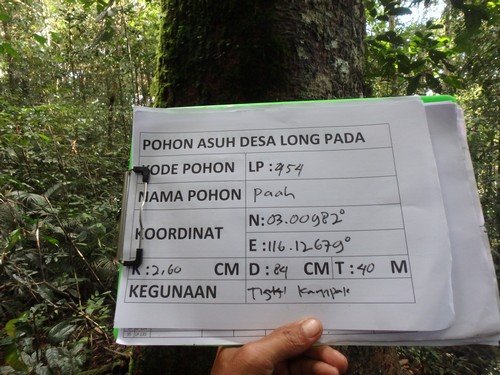 POHON ASUH DESA LONG PADA
KODE POHON LP : 954
NAMA POHON Paah
KOORDINAT N: 03.00982°
E : 116.12679°
K : 2,60 CM D : 84 CM T : 40 M
KEGUNAAN